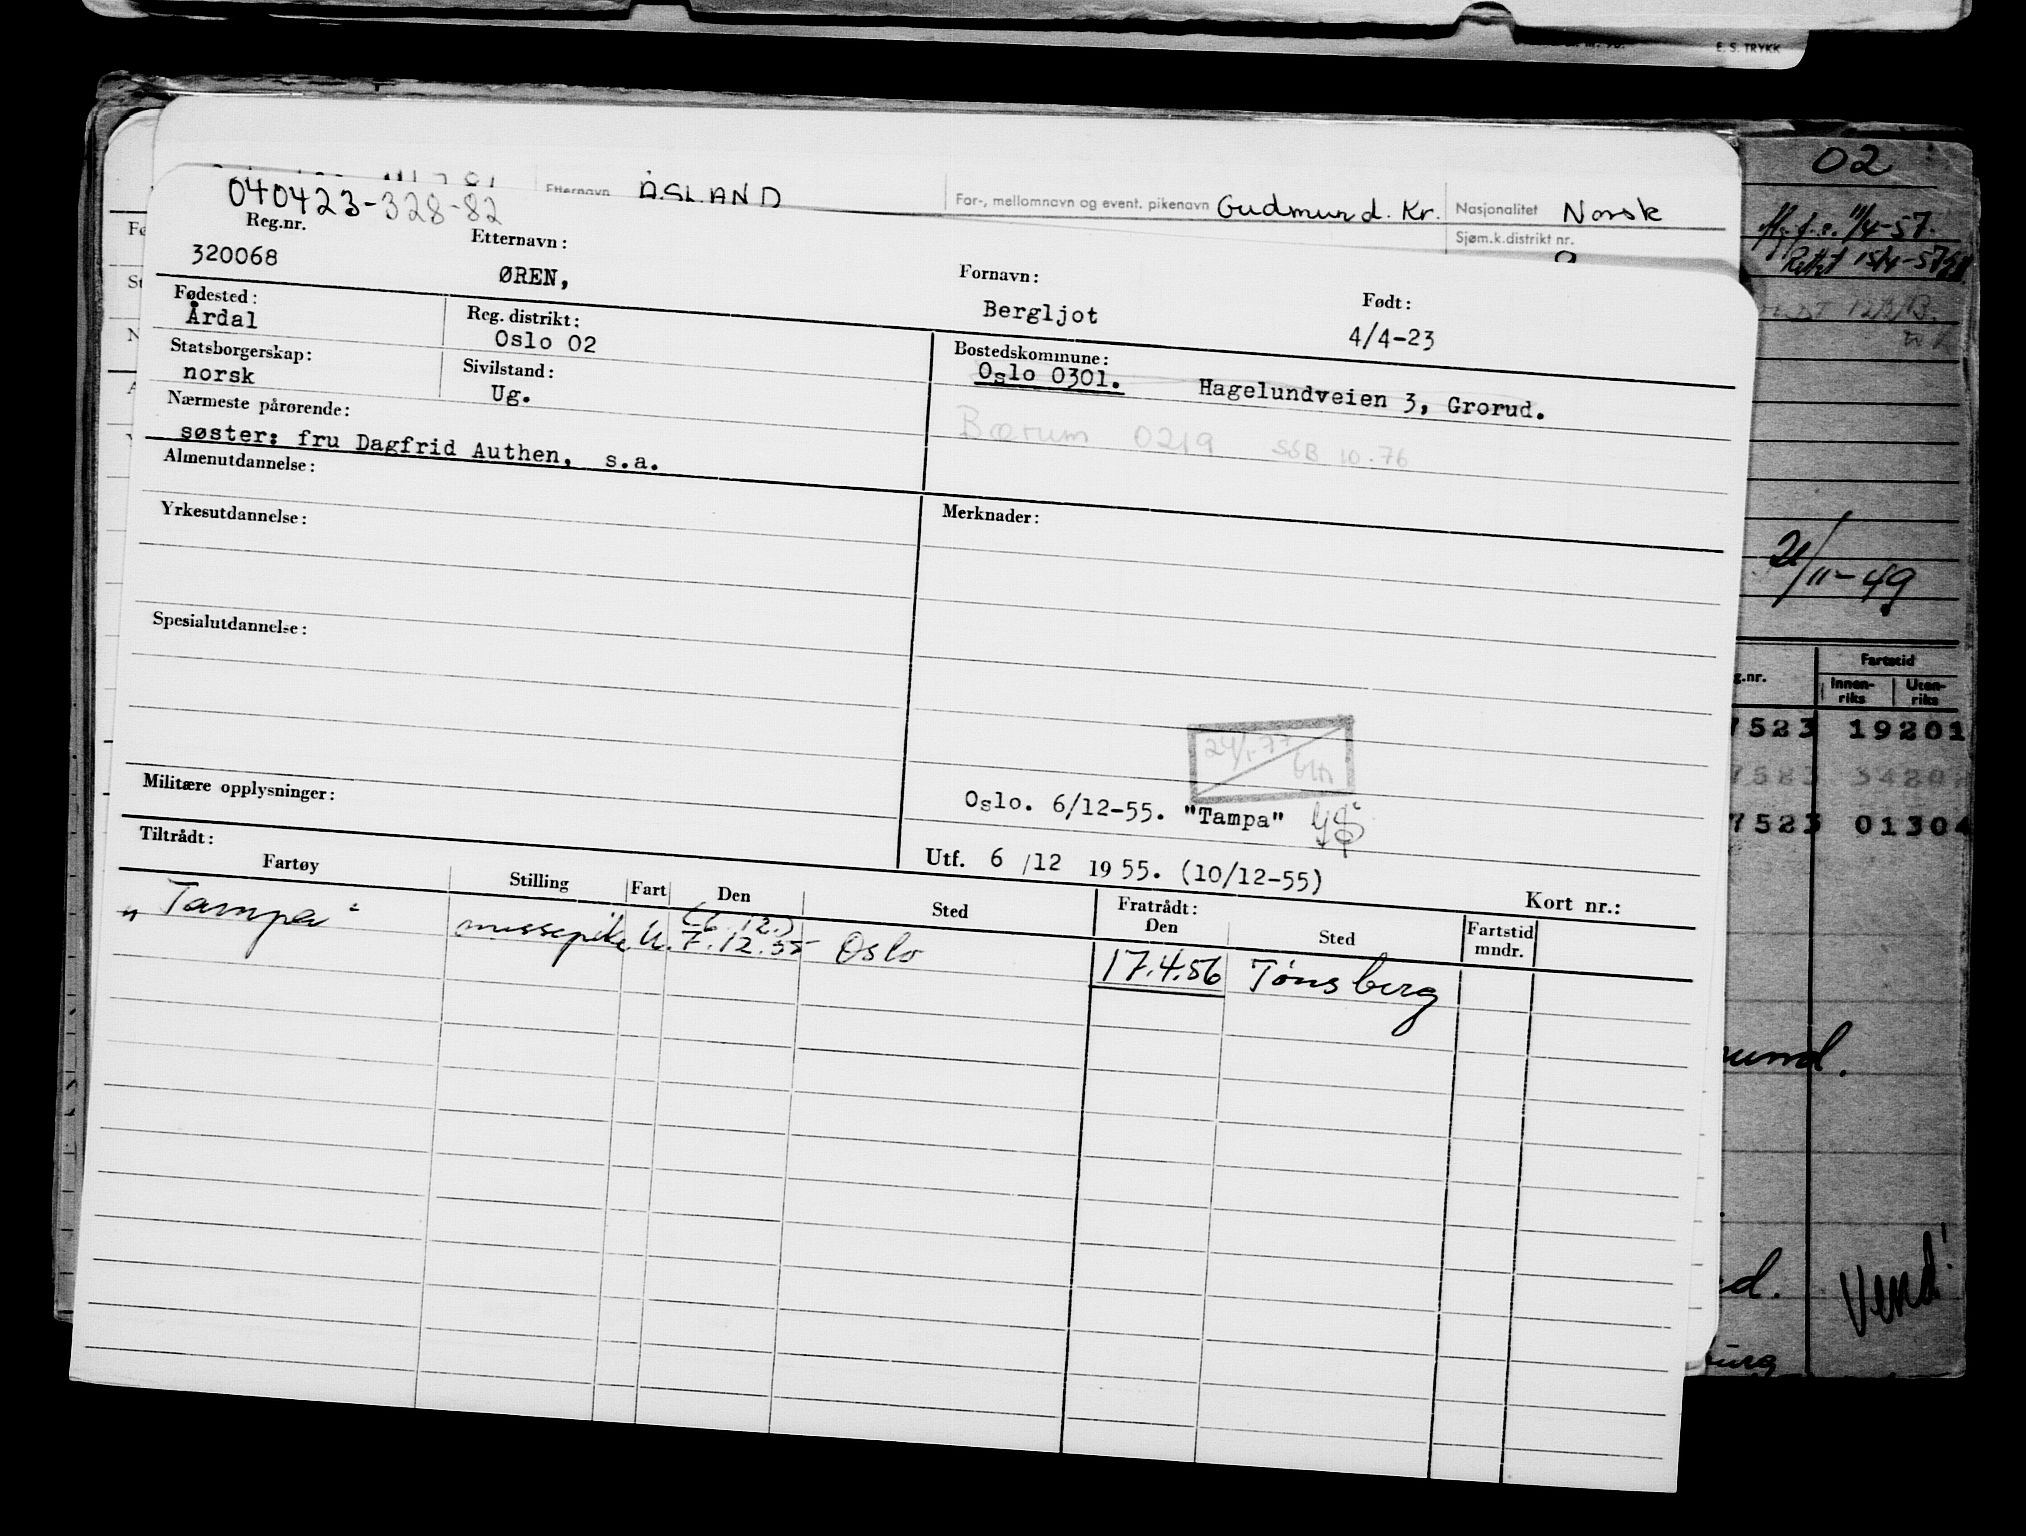 E. S. TRYKK
02
Etternavn ÅSLAND For-, mellomnavn og event. pikenavn Gudmund. Kr. Nasjonalitet Norsk
Sjøm.k.distrikt nr.
11/4-57.
Rettet 15/4-57
040423-328-82
Reg.nr. Etternavn: Fornavn: Født:
320068 ØREN, Bergljot 4/4-23
Fødested: Reg. distrikt: Bostedskommune:
Årdal Oslo 02 Oslo 0301. Hagelundveien 3, Grorud.
Statsborgerskap: Sivilstand:
norsk Ug.
Bærum 0219 SSB 10.76
Nærmeste pårørende:
søster: fru Dagfrid Authen, s.a.
Almenutdannelse:
Yrkesutdannelse: Merknader:
Spesialutdannelse:
24/1-77
Militære opplysninger:
Oslo. 6/12-55. "Tampa"
Utf. 6 /12 1955. (10/12-55)
Kort nr.:
Tiltrådt: Fratrådt:
Fartøy Stilling Fart Den Sted Den Sted Fartstid mndr.
(6.12.)
"Tampa" messepike U. 7.12.55 Oslo 17.4.56 Tønsberg
21/11-49
g.nr. Fartstid
Innen-riks Uten-riks
7523 19201
7523 3420
7523 01304
mund.
d.
Vend!
burg